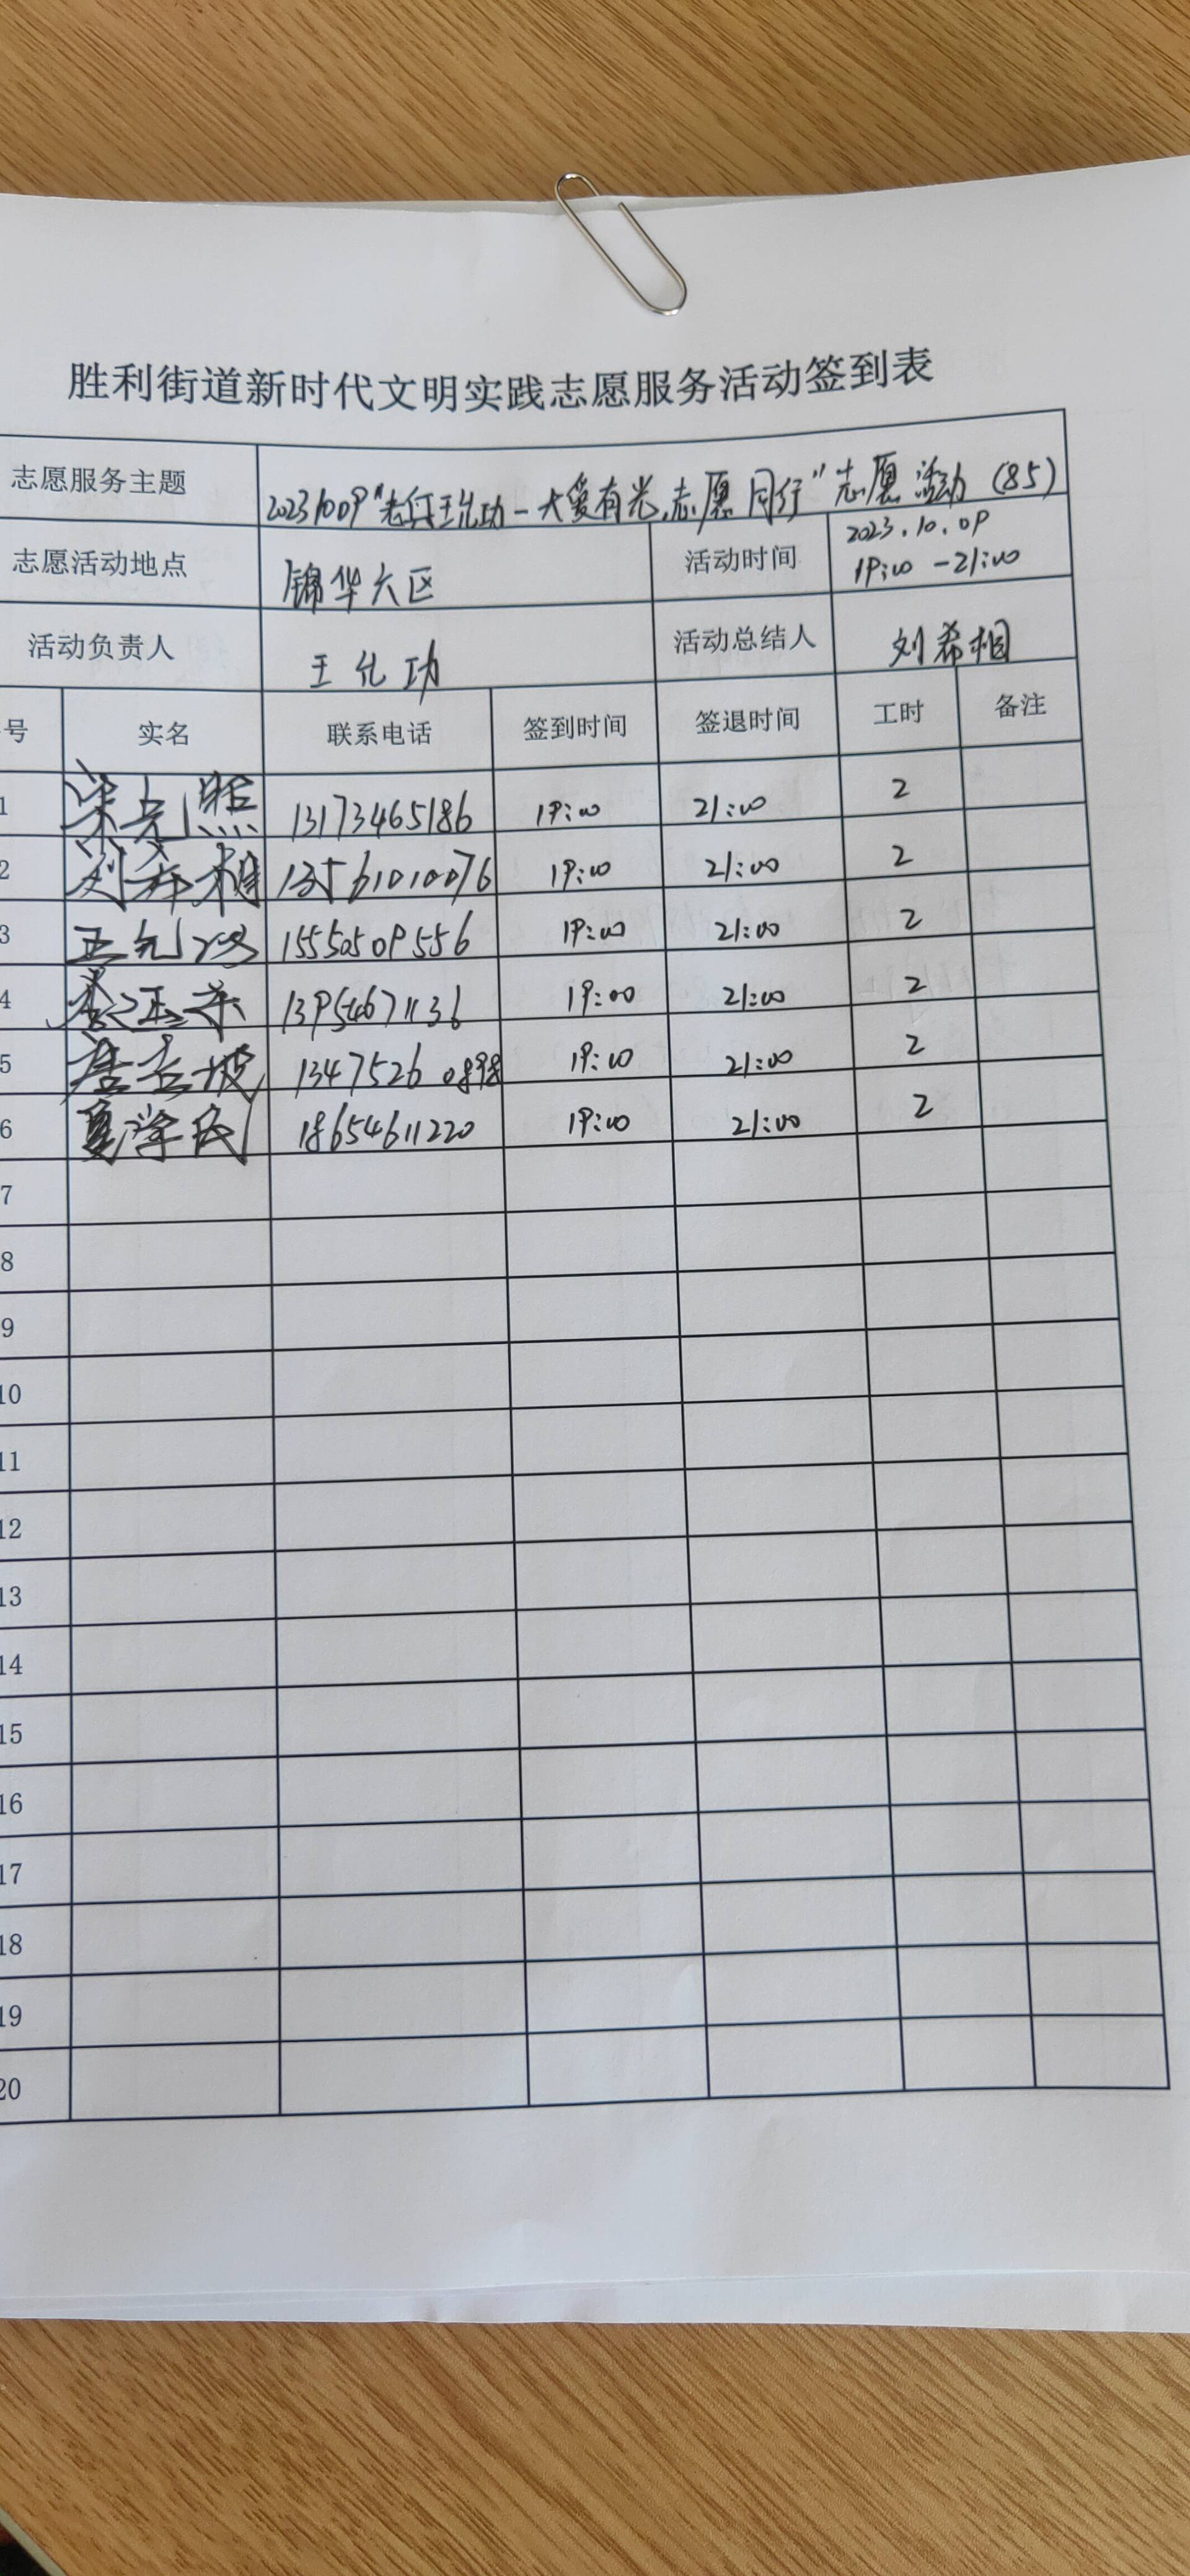 胜利街道新时代文明实践志愿服务活动签到表
志愿服务主题 20231009"老兵王允功-大爱有光,志愿同行"志愿活动(85)
志愿活动地点 锦华六区 活动时间 2023.10.09
19:00-21:00
活动负责人 王允功 活动总结人 刘希相
号 实名 联系电话 签到时间 签退时间 工时 备注
1 13173465186 19:00 21:00 2
2 刘希相 13561010076 19:00 21:00 2
3 王允功 15550509556 19:00 21:00 2
4 13954671136 19:00 21:00 2
5 13475260898 19:00 21:00 2
6 夏学民 18654611220 19:00 21:00 2
7
8
9
10
11
12
13
14
15
16
17
18
19
20